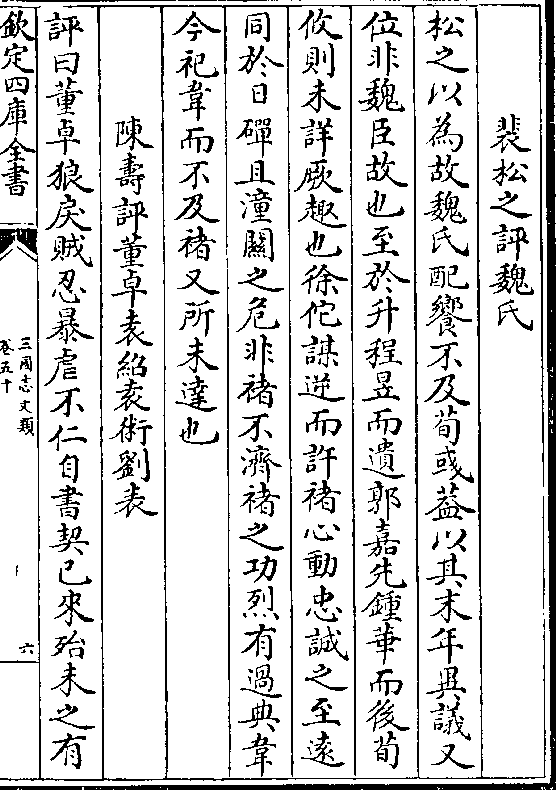 裴松之評魏氏
松之以為故魏氏配饗不及荀彧葢以其末年異議又
位非魏臣故也至於升程昱而遺郭嘉先鍾繇而後荀
攸則未詳厥趣也徐佗謀逆而許禇心動忠誠之至遠
同於日磾且潼關之危非禇不濟禇之功烈有過典韋
今祀韋而不及禇又所未達也
陳壽評董卓袁紹袁術劉表
評曰董卓狼戾賊忍暴虐不仁自書契已來殆未之有
欽定四庫全書
三國志文類
卷五十
六